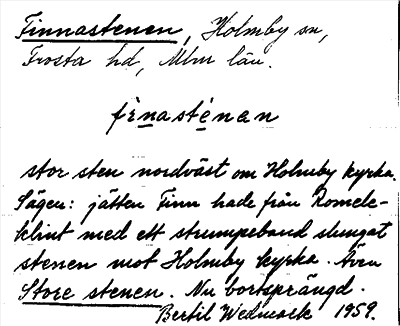 Finnastenen, Holmby sn,
Frosta hd, Mlm län.
fìnasténan
stor sten nordväst om Holmby kyrka.
Sägen: jätten Finn hade från Romele-
klint med ett strumpeband slungat
stenen mot Holmby kyrka. Även
Store stenen. Nu bortsprängd.
Bertil Wedmark 1959.